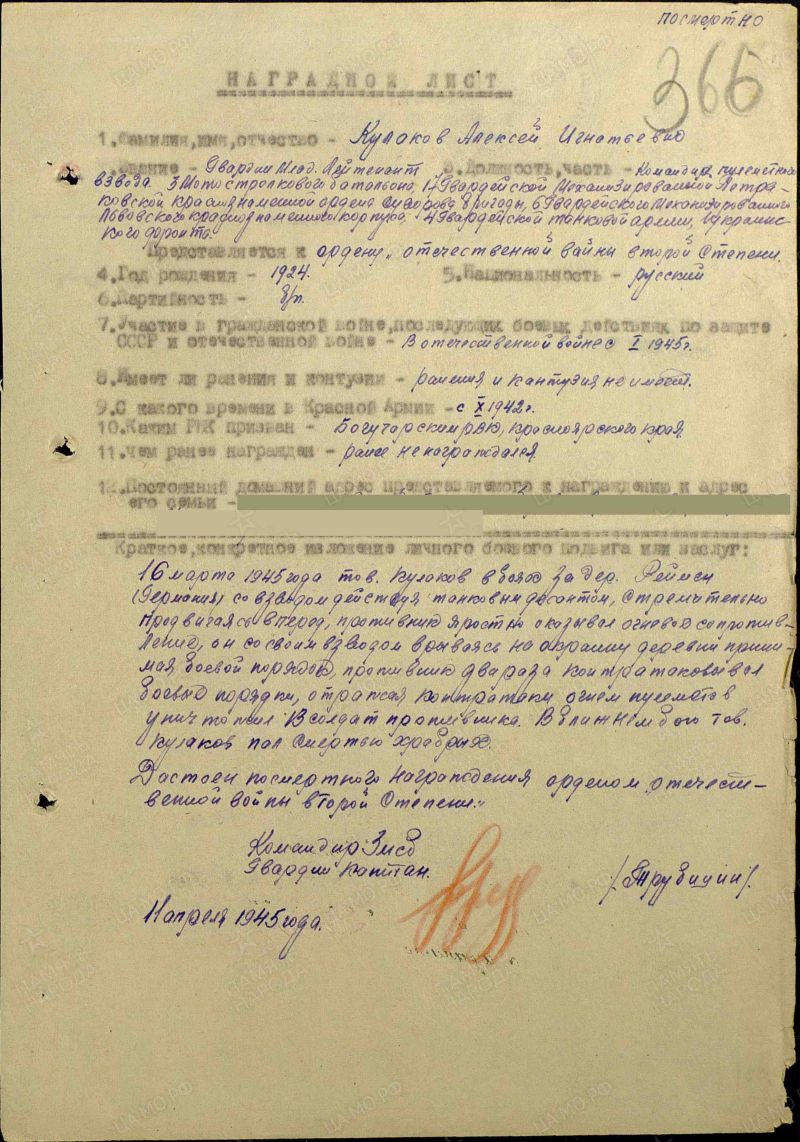 посмертно
366
НАГРАДНОЙ ЛИСТ
1.Фамилия,имя,отчество - Кулаков Алексей Игнатьевич
2.Звание - Гвардии Млад. Лейтенант 3.Должность,часть - Командир пулеметного
взвода 3 Мотострелкового батальона, 17 Гвардейской Механизированной Петра-
ковской краснознаменной ордена Суворова бригады, 6 Гвардейского Механизированного
Львовского краснознаменного корпуса 4 Гвардейской танковой армии, 1 Украинс-
кого фронта.
Представляется к ордену „отечественной вайны второй Степени.
4.Год рождения - 1924. 5.Национальность - русский
6.Партийность - б/п.
7.Участие в гражданской войне,последующих боевых действиях по защите
СССР и отечественной войне - В отечественной войне с I 1945г.
8.Имеет ли ранения и контузии - ранения и кантузия не имеет.
9.С какого времени в Красной Армии - с X 1942г.
10.Каким РВК призван - Богучарским РВК, Красноярского края
11.Чем ранее награжден - ранее не награждался.
12.Постоянный домашний адрес представляемого к награждению и адрес
его семьи -
Краткое,конкретное изложение личного боевого подвига или заслуг:
16 марта 1945 года тов. Кулаков в боях за дер. Реймен
(Германия) со взводом действуя танковым десантом, стремительно
продвигаясь вперед, противник яростно оказывал огневое сопротив-
ление, он со своим взводом врываясь на окраину деревни прини-
мая боевой порядок, противник два раза контратаковывал
боевые порядки, отражая контратаки огнем пулеметов
уничтожил 13 солдат противника. В ближнем бою тов.
Кулаков пал Смертью храбрых.
Дастоен посмертного награждения орденом „отечест-
венной войны второй Степени."
Командир 3 мсб
Гвардии капитан.
/Трубицин/.
1 апреля 1945 года.
ЦАМО.РФ
ПАМЯТЬ НАРОДА